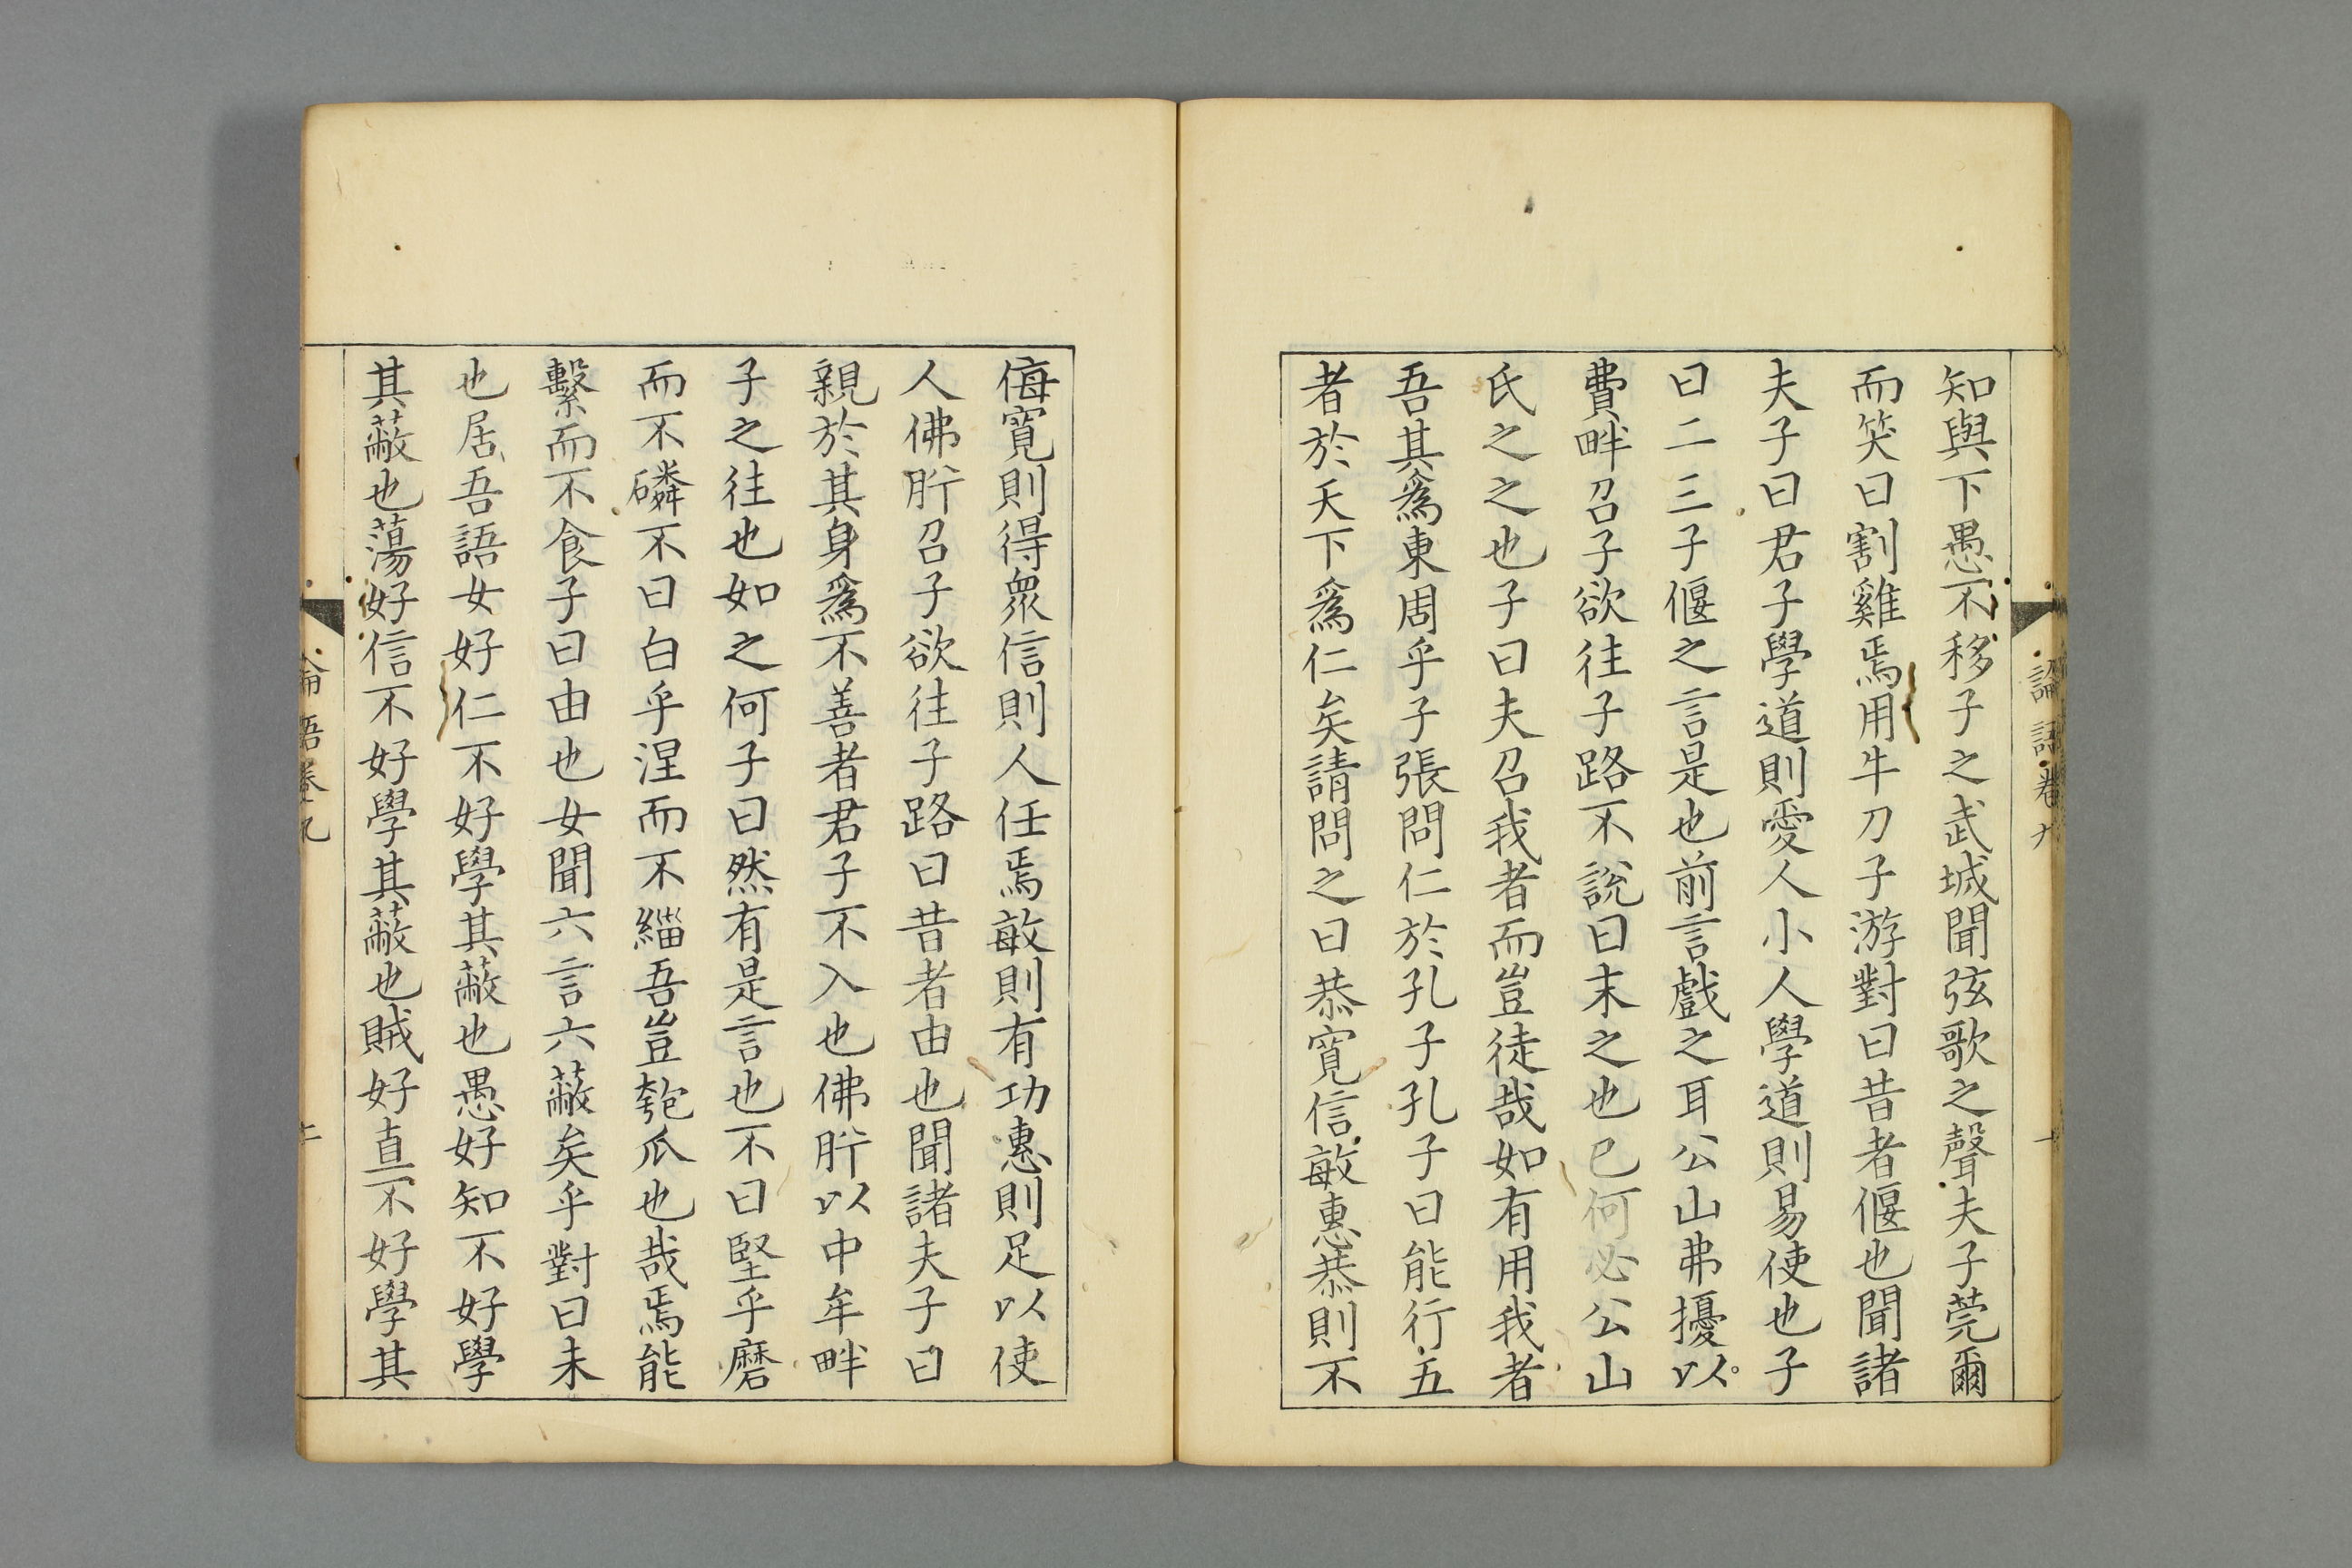 論語卷九
十
知與下愚不移子之武城聞弦歌之聲夫子莞爾
而笑曰割雞焉用牛刀子游對曰昔者偃也聞諸
夫子曰君子學道則愛人小人學道則易使也子
曰二三子偃之言是也前言戲之耳公山弗擾以
費畔召子欲往子路不說曰末之也已何必公山
氏之之也子曰夫召我者而豈徒哉如有用我者
吾其為東周乎子張問仁於孔子孔子曰能行五
者於天下為仁矣請問之曰恭寬信敏惠恭則不
侮寬則得眾信則人任焉敏則有功惠則足以使
人佛肸召子欲往子路曰昔者由也聞諸夫子曰
親於其身為不善者君子不入也佛肸以中牟畔
子之往也如之何子曰然有是言也不曰堅乎磨
而不磷不曰白乎涅而不緇吾豈匏瓜也哉焉能
繫而不食子曰由也女聞六言六蔽矣乎對曰未
也居吾語女好仁不好學其蔽也愚好知不好學
其蔽也蕩好信不好學其蔽也賊好直不好學其
論語卷九